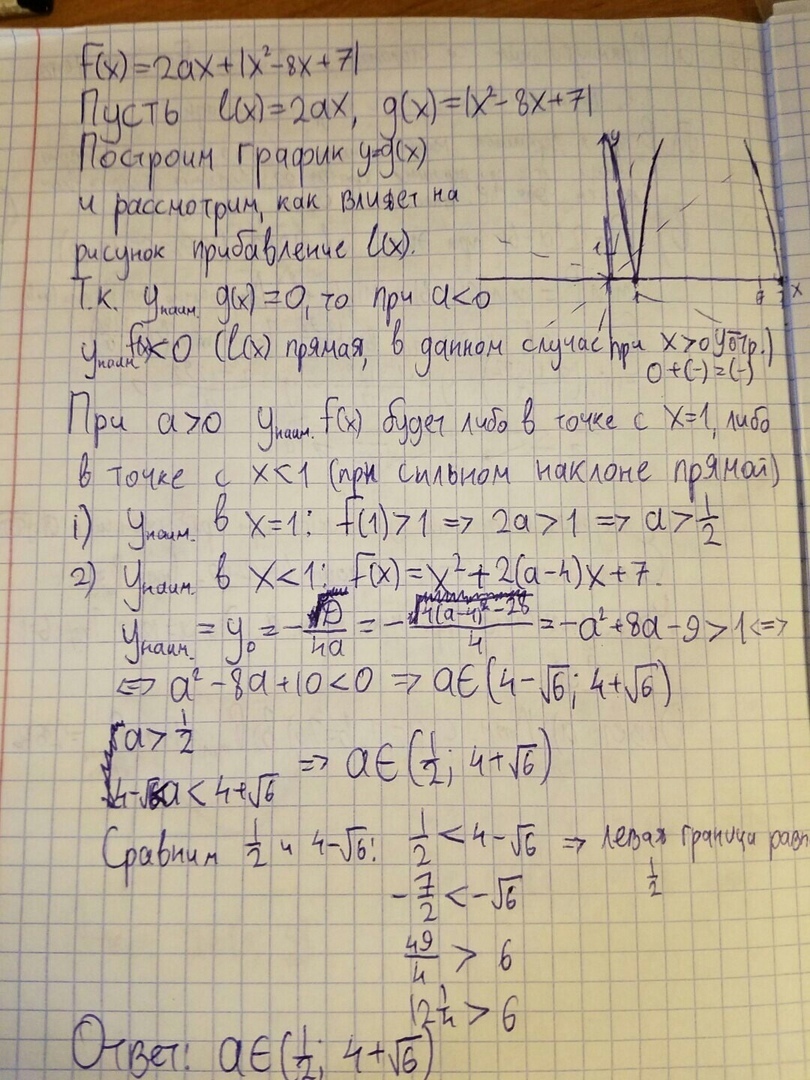 f(x)=2ax+|x²-8x+7|
Пусть l(x)=2ax, g(x)=|x²-8x+7|
Построим график y=g(x)
и рассмотрим, как влияет на
рисунок прибавление l(x).
Т.к. yнаим. g(x)=0, то при a<0
yнаим. f(x)<0 (l(x) прямая, в данном случае при x>0 yотр.)
0+(-)=(-)
При a>0 yнаим. f(x) будет либо в точке с x=1, либо
в точке с x<1 (при сильном наклоне прямой)
1) yнаим. в x=1: f(1)>1 => 2a>1 => a>1/2
2) yнаим. в x<1: f(x)=x²+2(a-4)x+7.
yнаим. = y₀ = -D/4a = -(4(a-4)²-28)/4 = -a²+8a-9>1 <=>
<=> a²-8a+10<0 => a∈(4-√6; 4+√6)
a>1/2
4-√6<a<4+√6 => a∈(1/2; 4+√6)
Сравним 1/2 и 4-√6: 1/2 < 4-√6 => левая граница равн
1/2
-7/2 < -√6
49/4 > 6
12 1/4 > 6
Ответ: a∈(1/2; 4+√6)
y
1
1
7
x